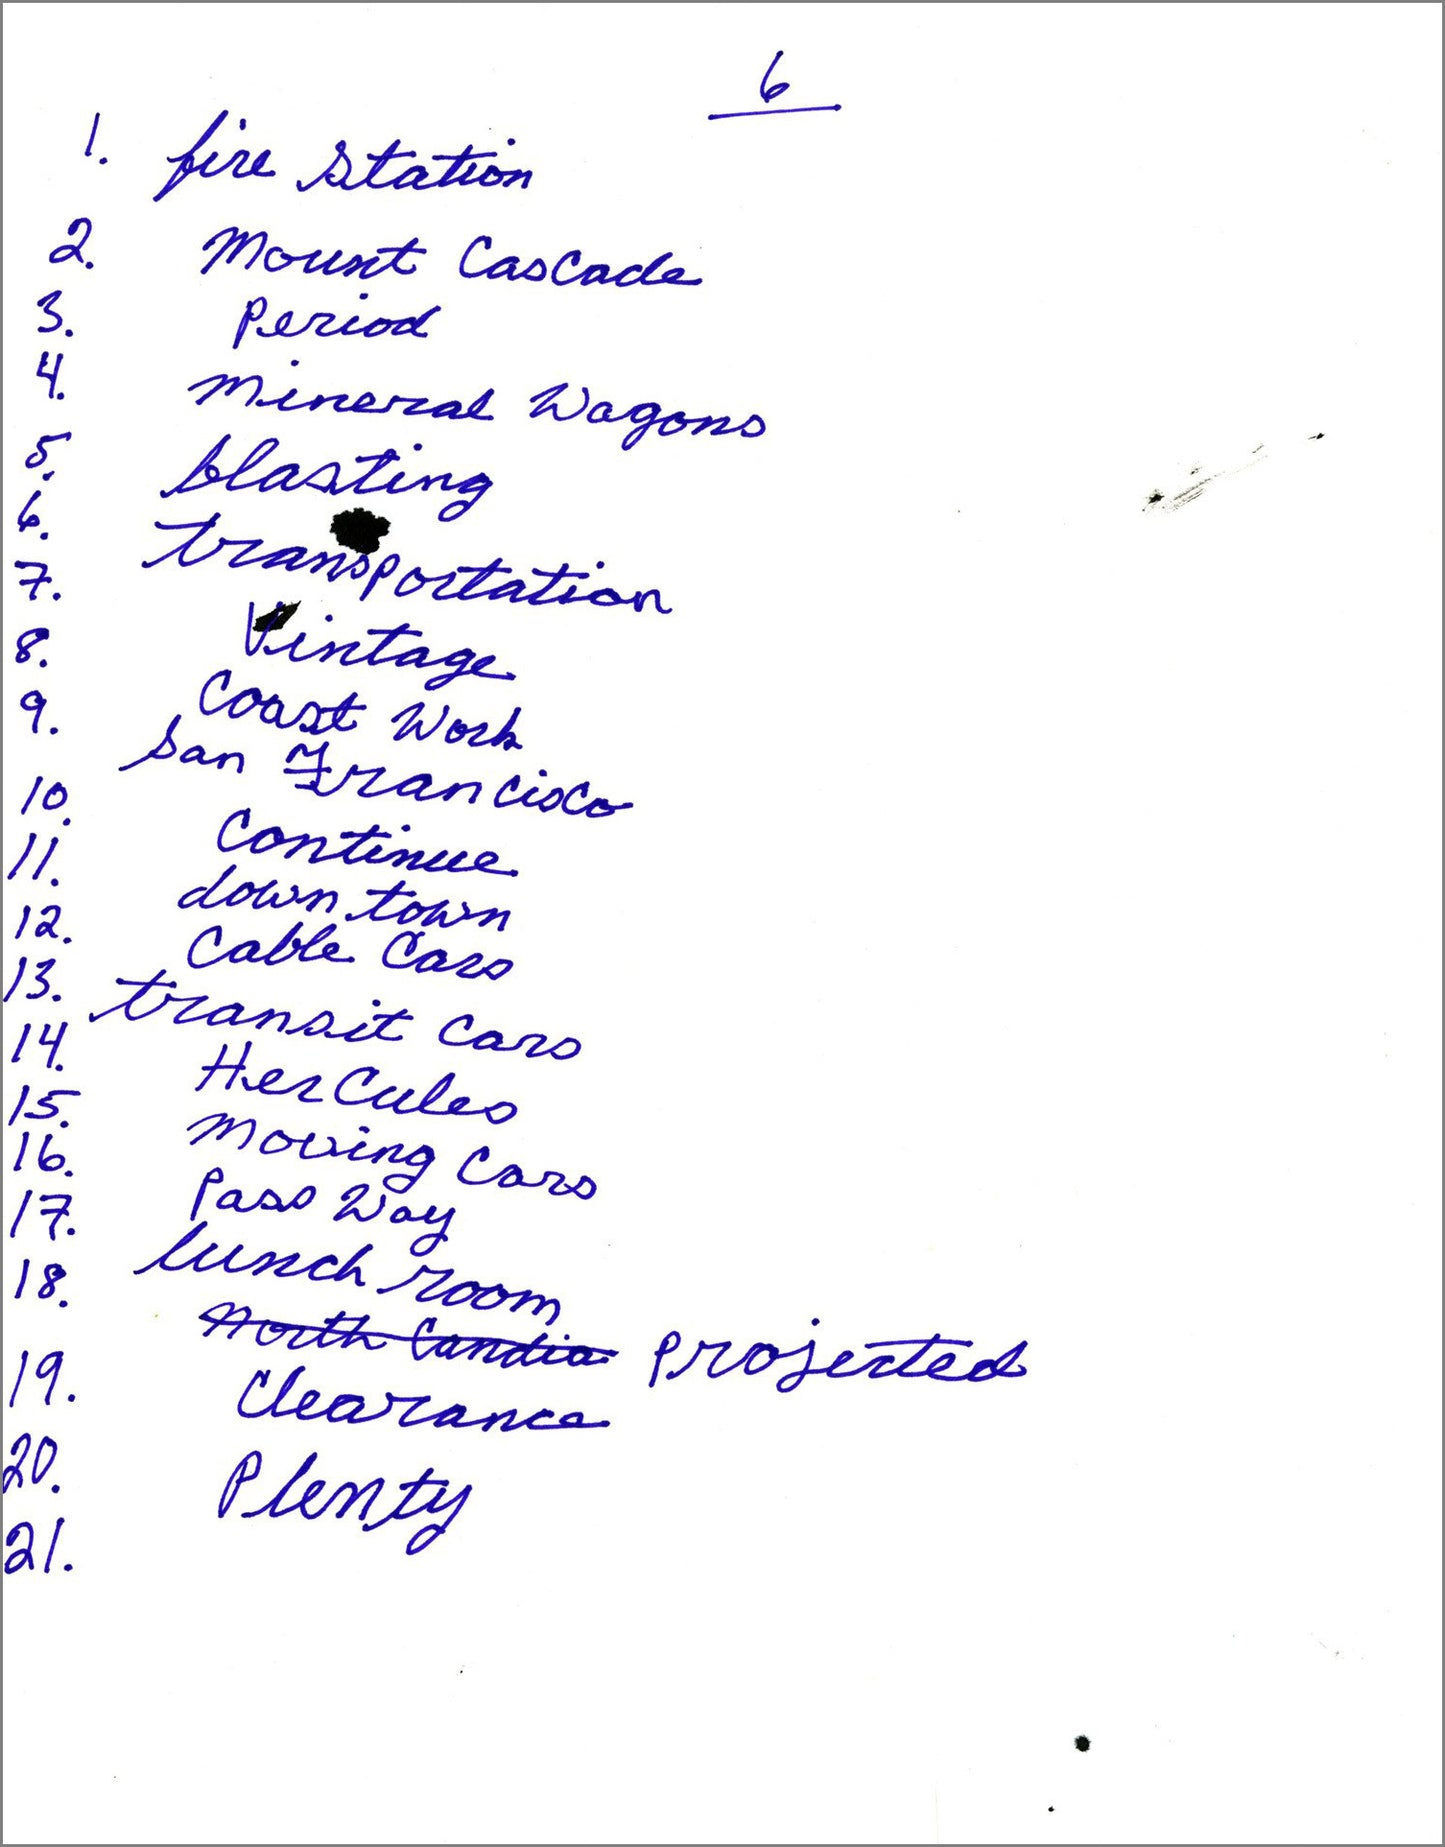 6
1. fire station
2. Mount Cascade
3. Period
4. Mineral Wagons
5. blasting
6. transportation
7. Vintage
8. Coast Work
9. San Francisco
10. Continue
11. down town
12. Cable Cars
13. transit Cars
14. HerCules
15. Moving Cars
16. Pass Way
17. lunch room
18. North Candia projected
19. Clearance
20. Plenty
21.